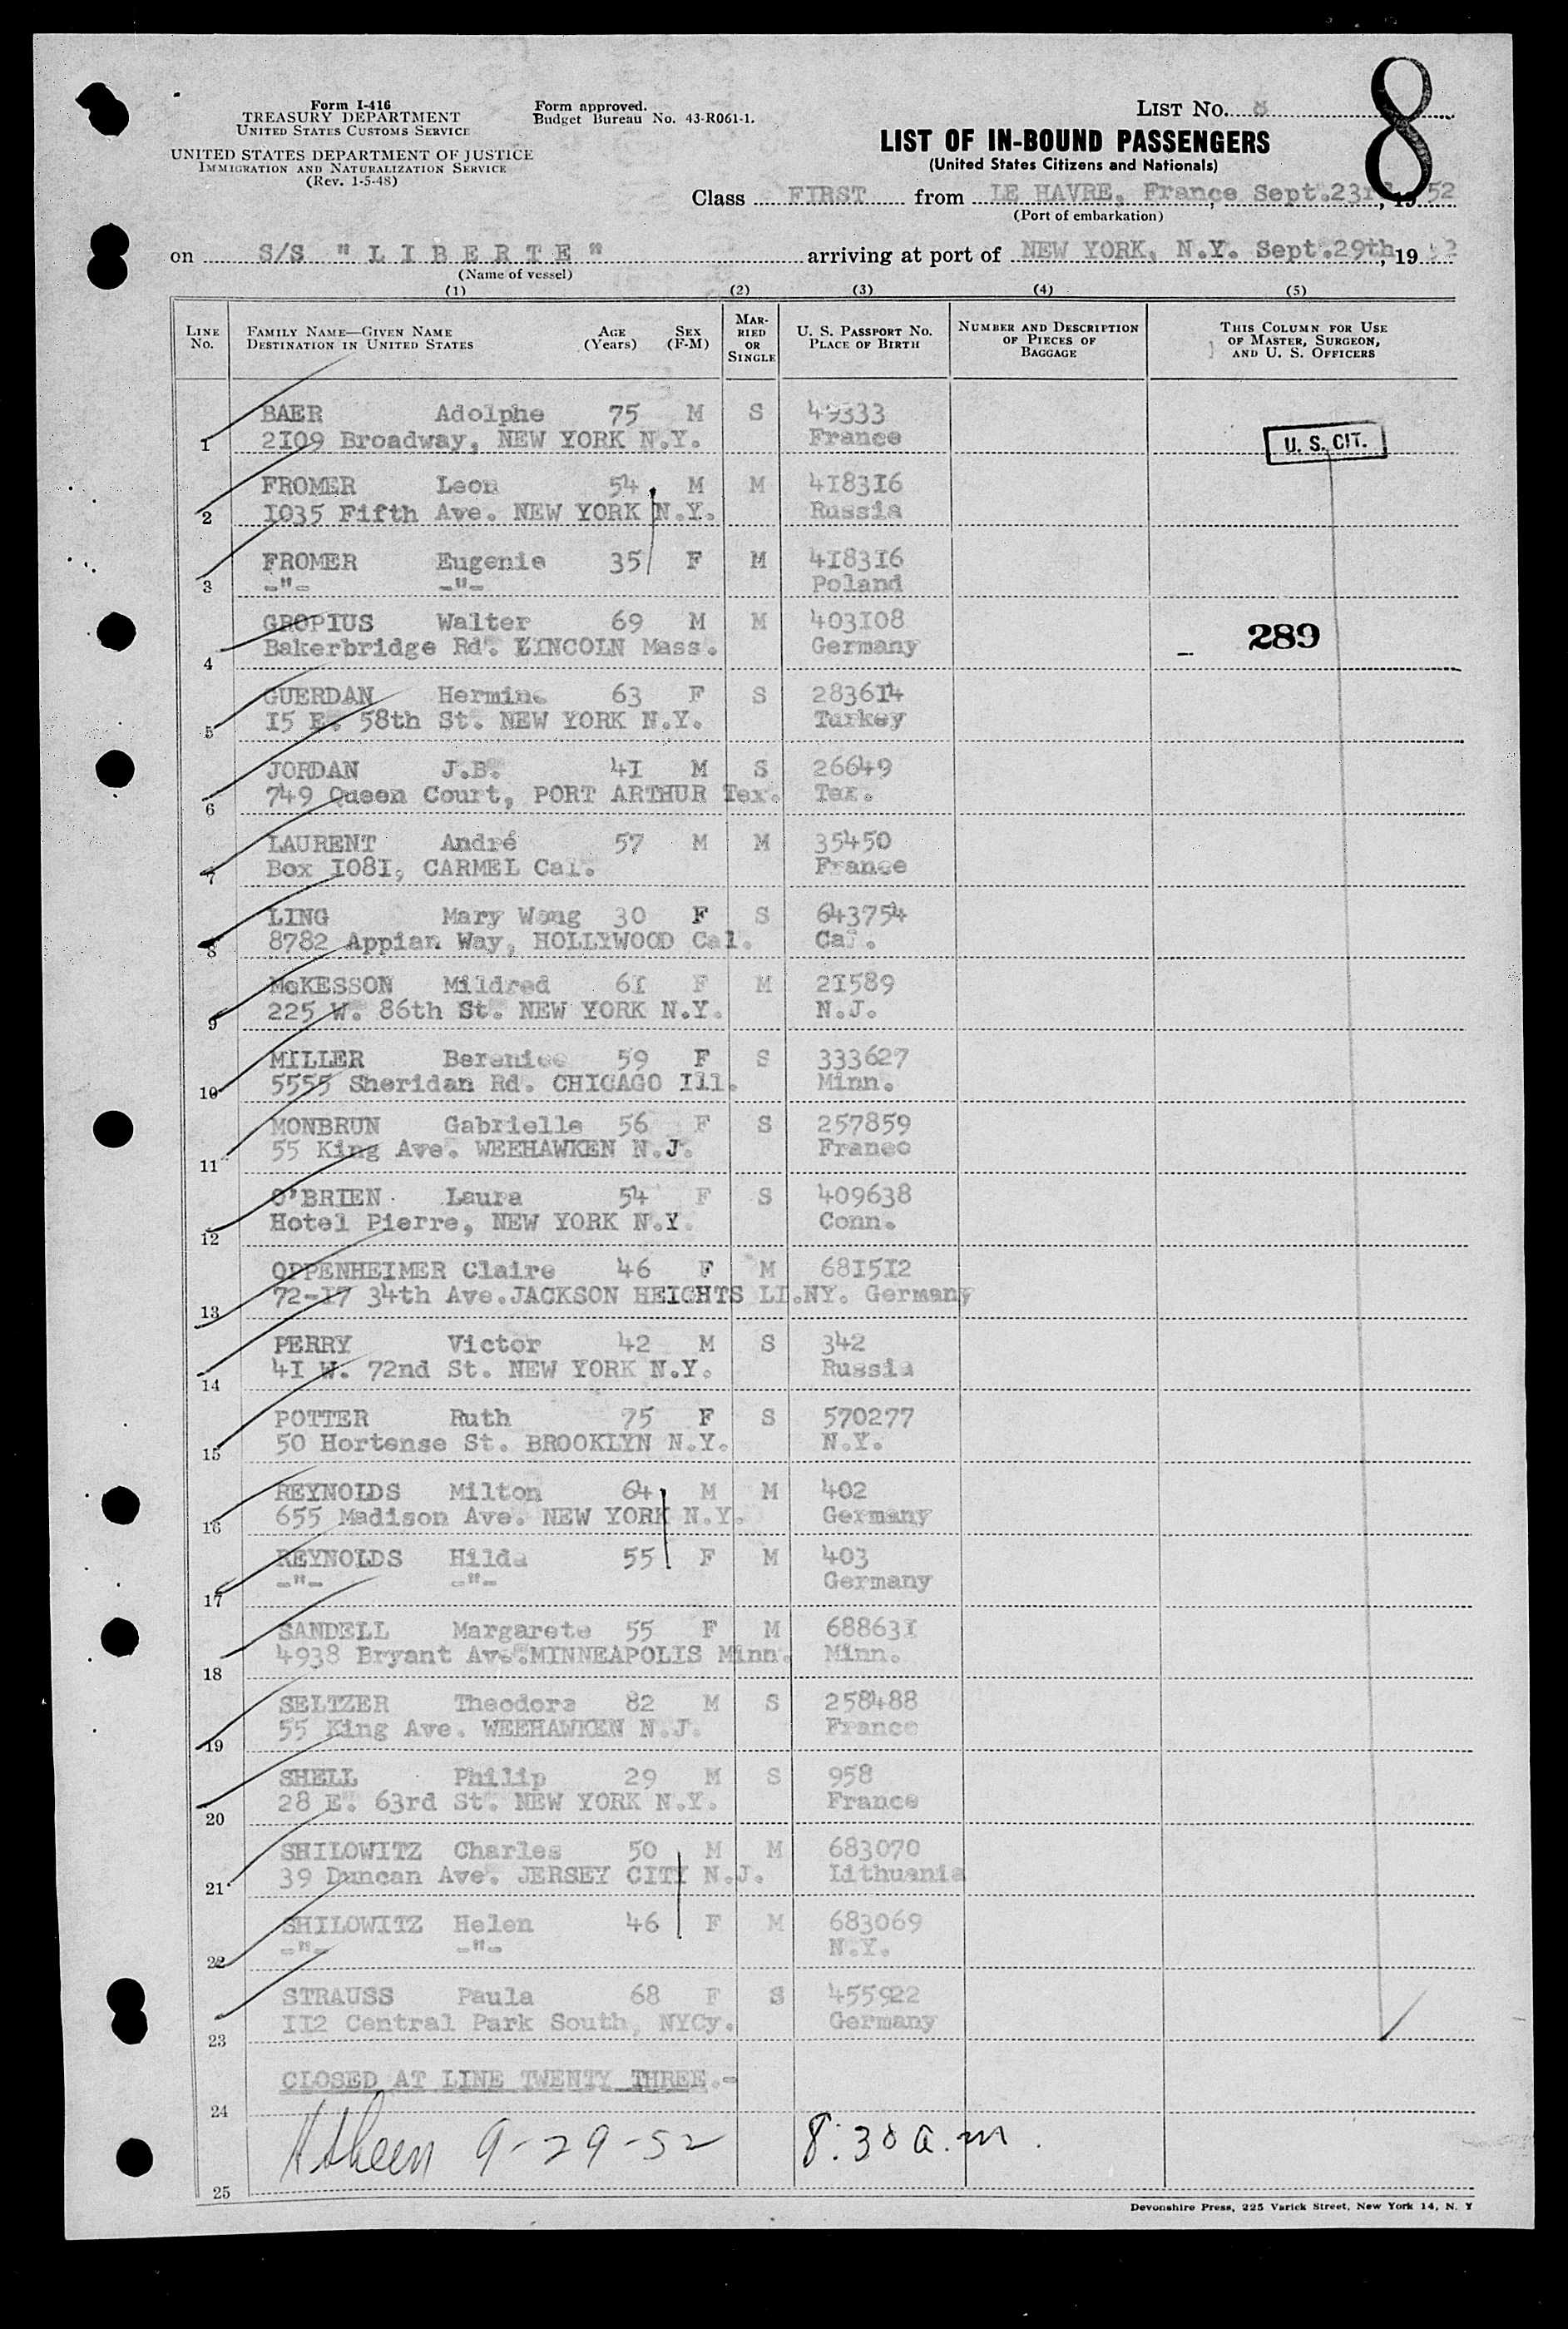 Form I-416
TREASURY DEPARTMENT
UNITED STATES CUSTOMS SERVICE
UNITED STATES DEPARTMENT OF JUSTICE
IMMIGRATION AND NATURALIZATION SERVICE
(Rev. 1-5-48)
Form approved.
Budget Bureau No. 43-R061-1.
LIST NO. 8
8
LIST OF IN-BOUND PASSENGERS
(United States Citizens and Nationals)
Class FIRST from LE HAVRE, France, Sept.23rd, 1952
(Port of embarkation)
on S/S "LIBERTE" arriving at port of NEW YORK, N.Y. Sept.29th, 1952
(Name of vessel)
(1) (2) (3) (4) (5)
LINE NO. FAMILY NAME—GIVEN NAME DESTINATION IN UNITED STATES AGE (Years) SEX (F-M) MARRIED OR SINGLE U. S. PASSPORT NO. PLACE OF BIRTH NUMBER AND DESCRIPTION OF PIECES OF BAGGAGE THIS COLUMN FOR USE OF MASTER, SURGEON, AND U. S. OFFICERS
BAER Adolphe 75 M S 49333
1 2I09 Broadway, NEW YORK N.Y. France
U. S. CIT.
FROMER Leon 54 M M 4I83I6
2 I035 Fifth Ave. NEW YORK N.Y. Russia
FROMER Eugenie 35 F M 4I83I6
3 -"- -"- Poland
GROPIUS Walter 69 M M 403I08
4 Bakerbridge Rd. LINCOLN Mass. Germany
289
GUERDAN Hermine 63 F S 2836I4
5 I5 E. 58th St. NEW YORK N.Y. Turkey
JORDAN J.B. 4I M S 26649
6 749 Queen Court, PORT ARTHUR Tex. Tex.
LAURENT André 57 M M 35450
7 Box I08I, CARMEL Cal. France
LING Mary Wong 30 F S 643754
8 8782 Appian Way, HOLLYWOOD Cal. Cal.
McKESSON Mildred 6I F M 2I589
9 225 W. 86th St. NEW YORK N.Y. N.J.
MILLER Berenice 59 F S 333627
10 5555 Sheridan Rd. CHICAGO Ill. Minn.
MONBRUN Gabrielle 56 F S 257859
11 55 King Ave. WEEHAWKEN N.J. France
O'BRIEN Laura 54 F S 409638
12 Hotel Pierre, NEW YORK N.Y. Conn.
OPPENHEIMER Claire 46 F M 68I5I2
13 72-I7 34th Ave.JACKSON HEIGHTS LI.NY. Germany
PERRY Victor 42 M S 342
14 4I W. 72nd St. NEW YORK N.Y. Russia
POTTER Ruth 75 F S 570277
15 50 Hortense St. BROOKLYN N.Y. N.Y.
REYNOLDS Milton 64 M M 402
16 655 Madison Ave. NEW YORK N.Y. Germany
REYNOLDS Hilda 55 F M 403
17 -"- -"- Germany
SANDELL Margarete 55 F M 68863I
18 4938 Bryant Ave.MINNEAPOLIS Minn. Minn.
SELTZER Theodore 82 M S 258488
19 55 King Ave. WEEHAWKEN N.J. France
SHELL Philip 29 M S 958
20 28 E. 63rd St. NEW YORK N.Y. France
SHILOWITZ Charles 50 M M 683070
21 39 Duncan Ave. JERSEY CITY N.J. Lithuania
SHILOWITZ Helen 46 F M 683069
22 -"- -"- N.Y.
STRAUSS Paula 68 F S 455922
23 II2 Central Park South, NYCy. Germany
CLOSED AT LINE TWENTY THREE.-
24
9-29-52 8:30 a.m.
25
Devonshire Press, 225 Varick Street, New York 14, N. Y